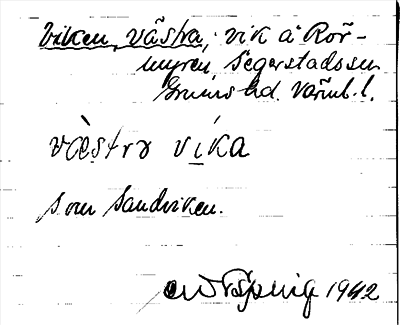 Viken, västra, vik å Rör-
myren Segerstads sn
Grums hd. Värml. l.
væ̀stra vi̲ka
som Sandviken.
1942